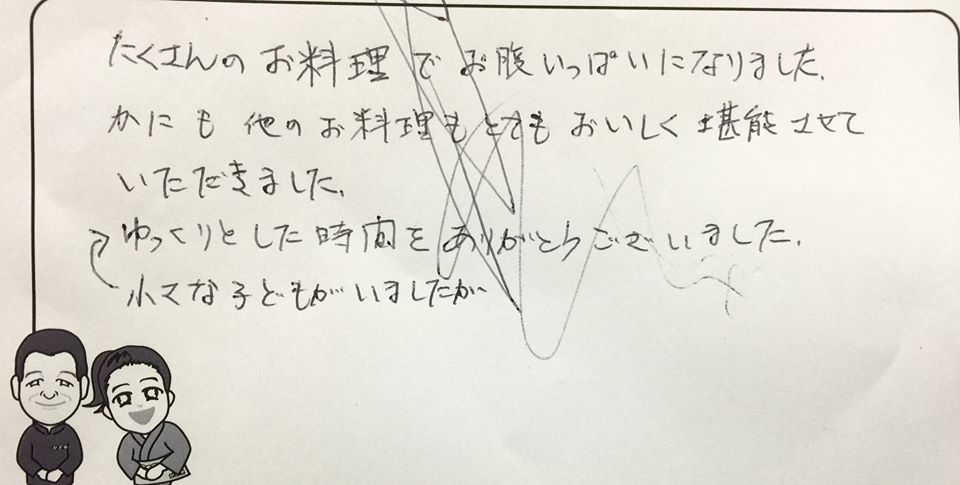 たくさんのお料理でお腹いっぱいになりました.
かにも他のお料理もとてもおいしく堪能させて
いただきました.
ゆっくりとした時間をありがとうございました.
小さな子どもがいましたが